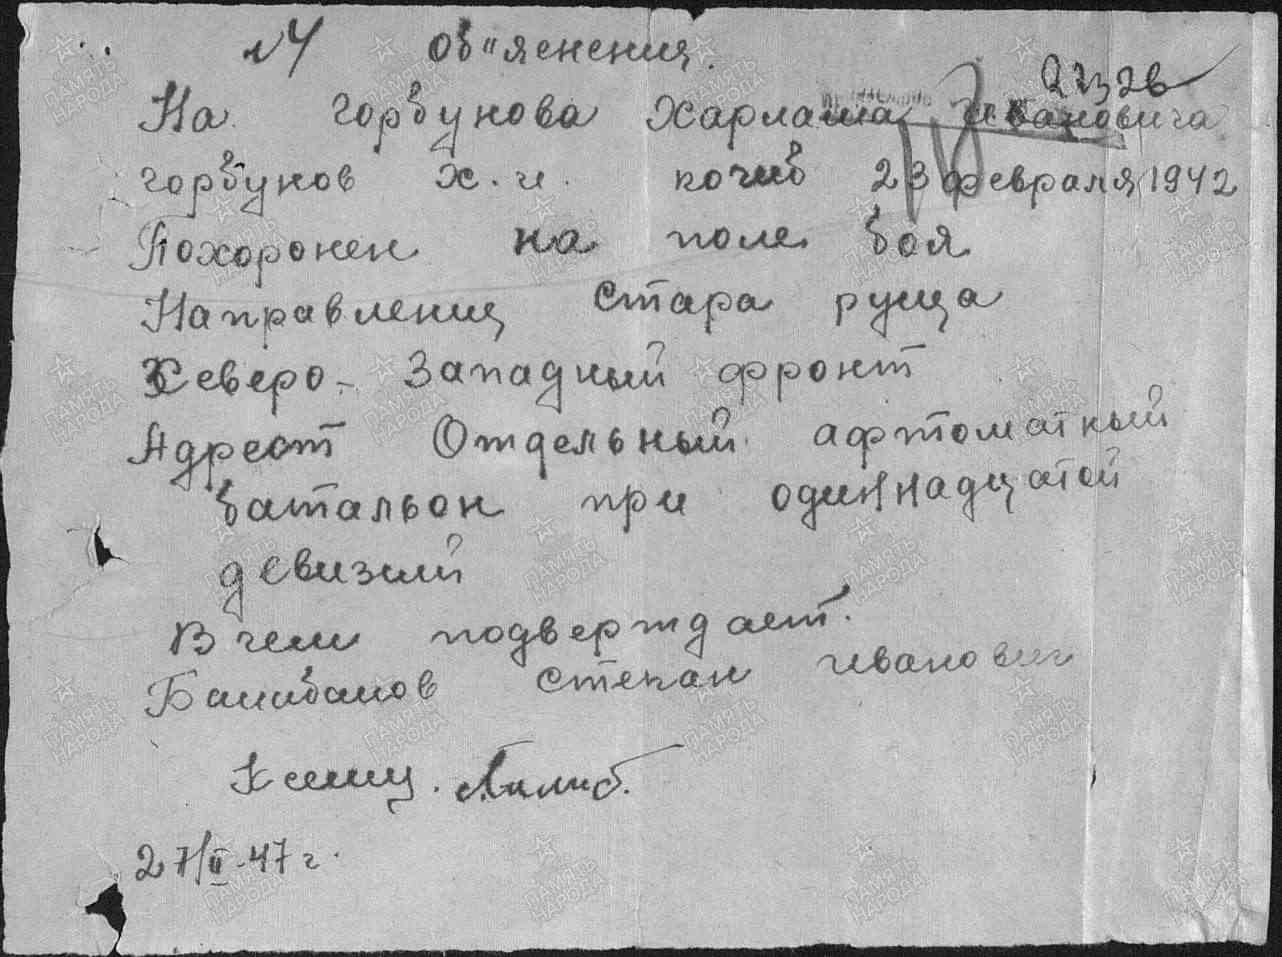 №4 Об"яснения.
22326
На горбунова Харлама Ивановича
горбунов Х.и. погиб 23 февраля 1942
Похоронен на поле боя
Направлениц Стара руща
Северо-Западный фронт
Адрест Отдельный афтоматный
батальон при одиннадцатой
девизий
В чем подверждает.
Балабанов Степан иванович
К сему.
27/II-47 г.
ПАМЯТЬ НАРОДА